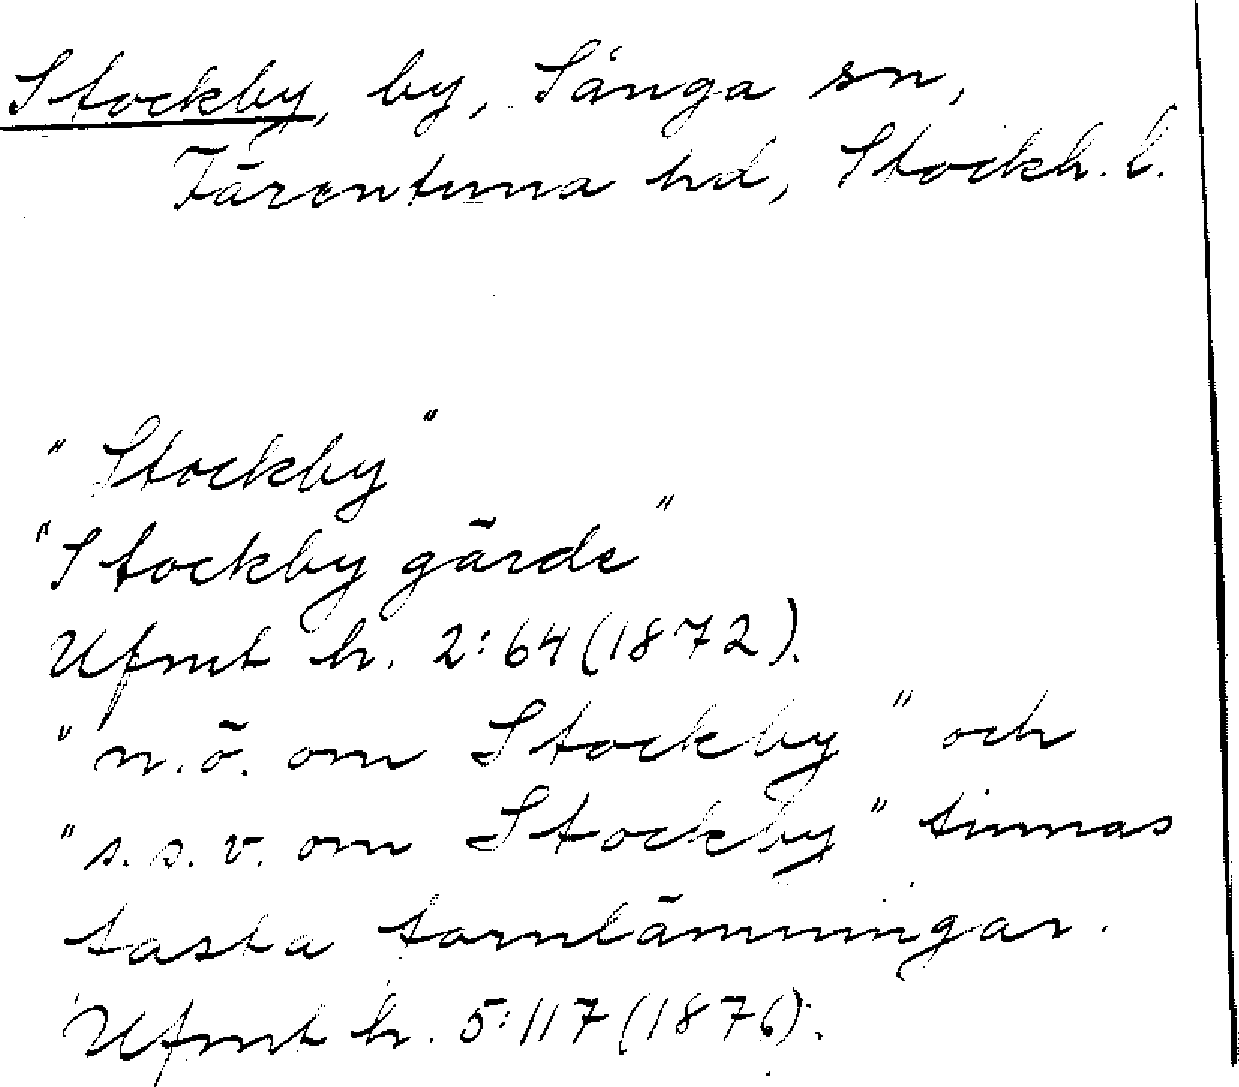 Stockby, by, Sånga sn,
Färentuna hd, Stockh. l.
"Stockby"
"Stockby gärde"
Ufmt h. 2:64 (1872).
"n.ö. om Stockby" och
"s.s.v. om Stockby" finnas
fasta fornlämningar.
Ufmt h. 5:117 (1876).